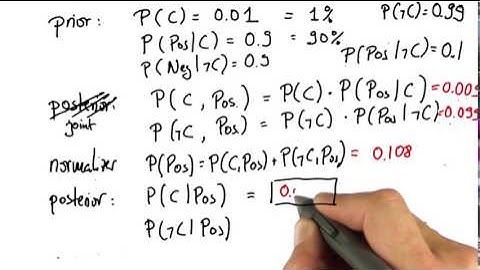 prior: P(C) = 0.01 = 1% P(¬C)=0.99
P(Pos|C) = 0.9 = 90%
P(Neg|¬C) = 0.9 P(Pos|¬C)=0.1
posterior: P(C, Pos) = P(C) · P(Pos|C) =0.009
joint P(¬C, Pos) = P(¬C) · P(Pos|¬C) =0.099
normalizer P(Pos) = P(C,Pos) + P(¬C,Pos) = 0.108
posterior: P(C|Pos) = 0.
P(¬C|Pos)